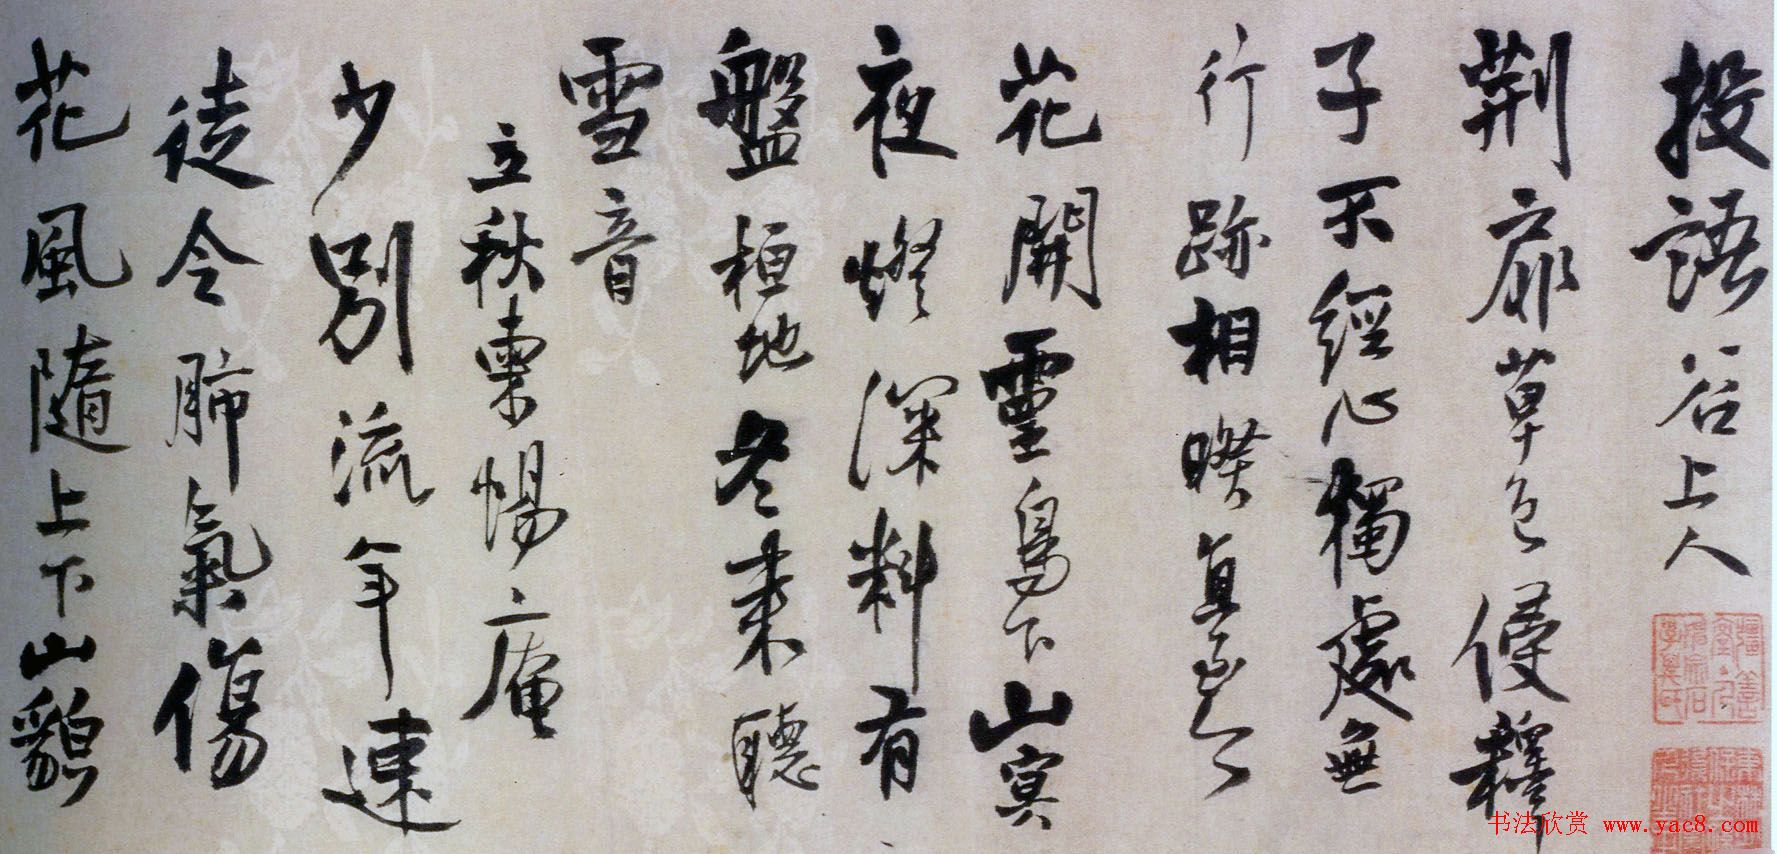 投語谷上人
荊扉草色侵釋
子不經心獨處無
行跡相暌直至今
花開靈鳥下山冥
夜燈深料有
盤桓地冬來聽
雪音
立秋柬惕庵
少別流年速
徒令肺氣傷
花風隨上下山貌
书法欣赏 www.yac8.com